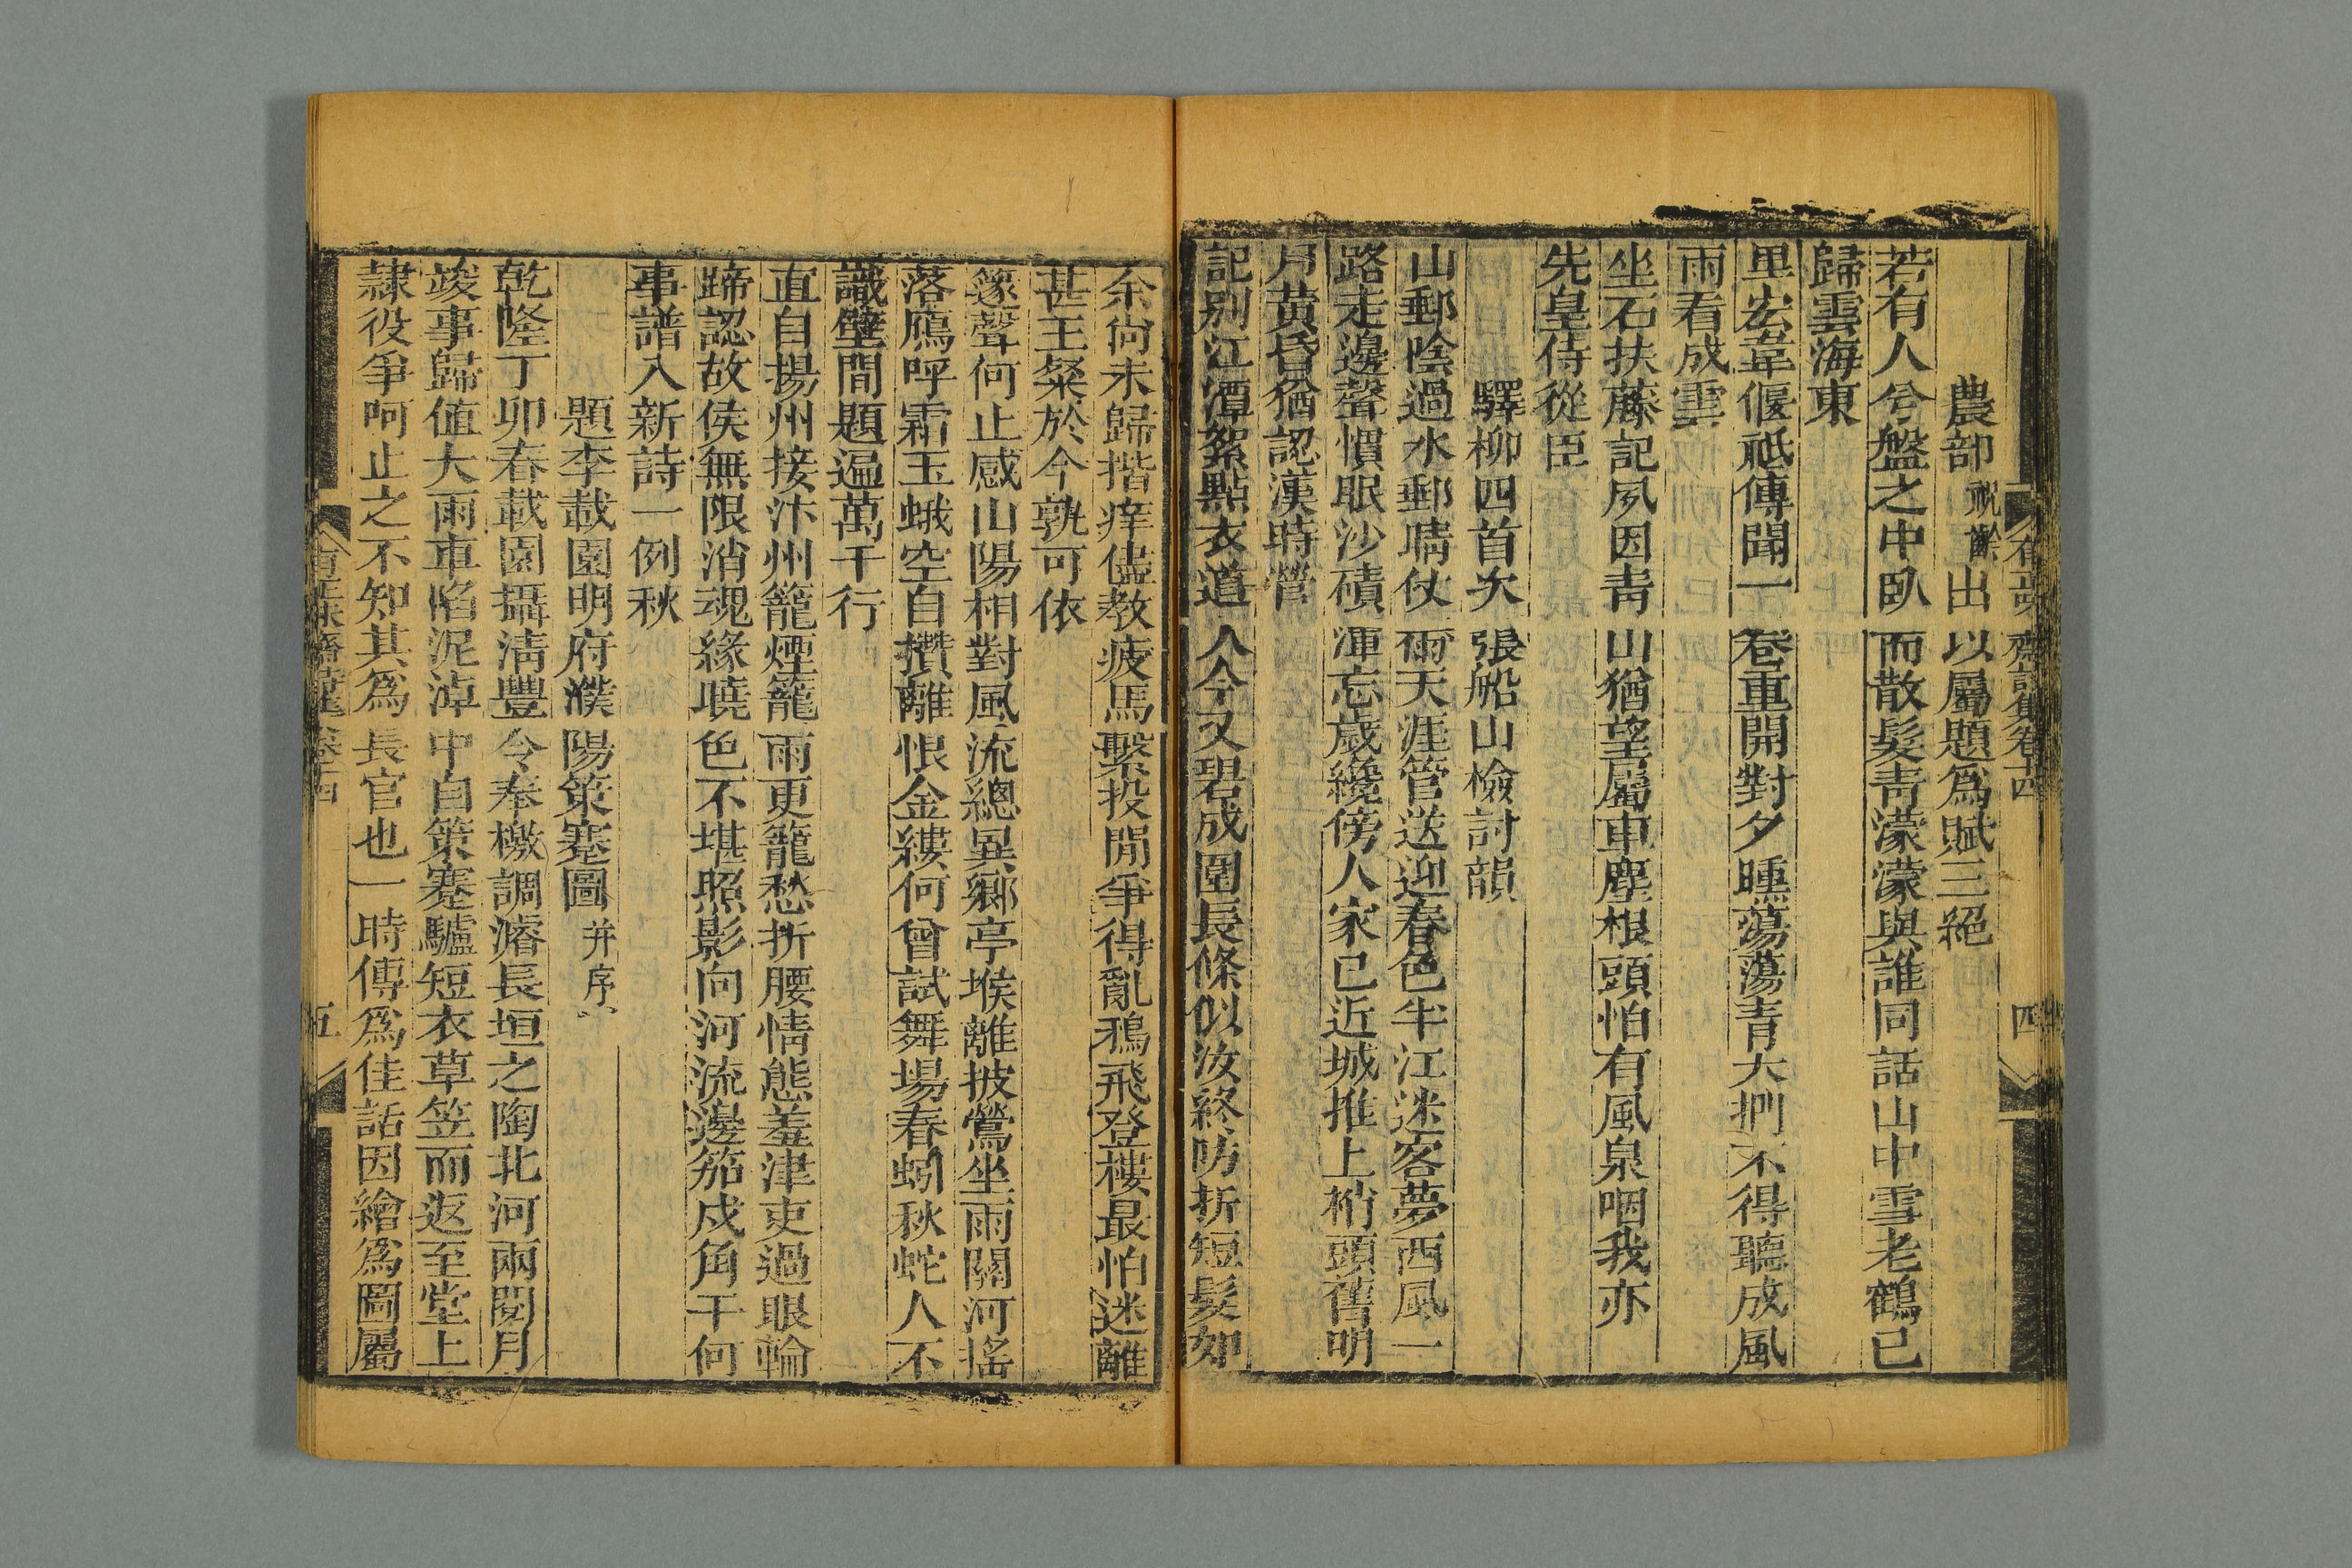 農部祝餘出以屬題爲賦三絕
若有人兮盤之中臥而散髮靑濛濛與誰同話山中雪老鶴已
歸雲海東
里宏韋偃祗傳聞一卷重開對夕曛蕩蕩青天捫不得聽成風
雨看成雲
坐石扶藤記夙因靑山猶望屬車塵根頭怕有風泉咽我亦
先皇侍從臣
驛柳四首次張船山檢討韻
山郵陰過水郵晴仗爾天涯管送迎春色半江迷客夢西風一
路走邊聲慣眠沙磧渾忘歲纔傍人家已近城推上梢頭舊明
月黃昏猶認漢時營
記别江潭絮點衣道人今又碧成圍長條似汝終妨折短髮如
余尚未歸揩痒儘教疲馬繫投閒爭得亂鴉飛登樓最怕迷離
甚王粲於今孰可依
篴聲何止感山陽相對風流總異鄉亭堠離披鶯坐雨關河搖
落鴈呼霜玉蛾空自攢離恨金縷何曾試舞場春蚓秋蛇人不
識壁間題遍萬千行
直自揚州接汴州籠煙籠雨更籠愁折腰情態羞津吏過眼輪
蹄認故侯無限消魂緣曉色不堪照影向河流邊笳戍角干何
事譜入新詩一例秋
題李載園明府濮陽策蹇圖并序
乾隆丁卯春載園攝淸豐令奉檄調濬長垣之陶北河兩閱月
竣事歸値大雨車陷泥淖中自策蹇驢短衣草笠而返至堂上
隸役爭呵止之不知其爲長官也一時傳爲佳話因繪爲圖屬
有正味齋詩集卷十四
四
五